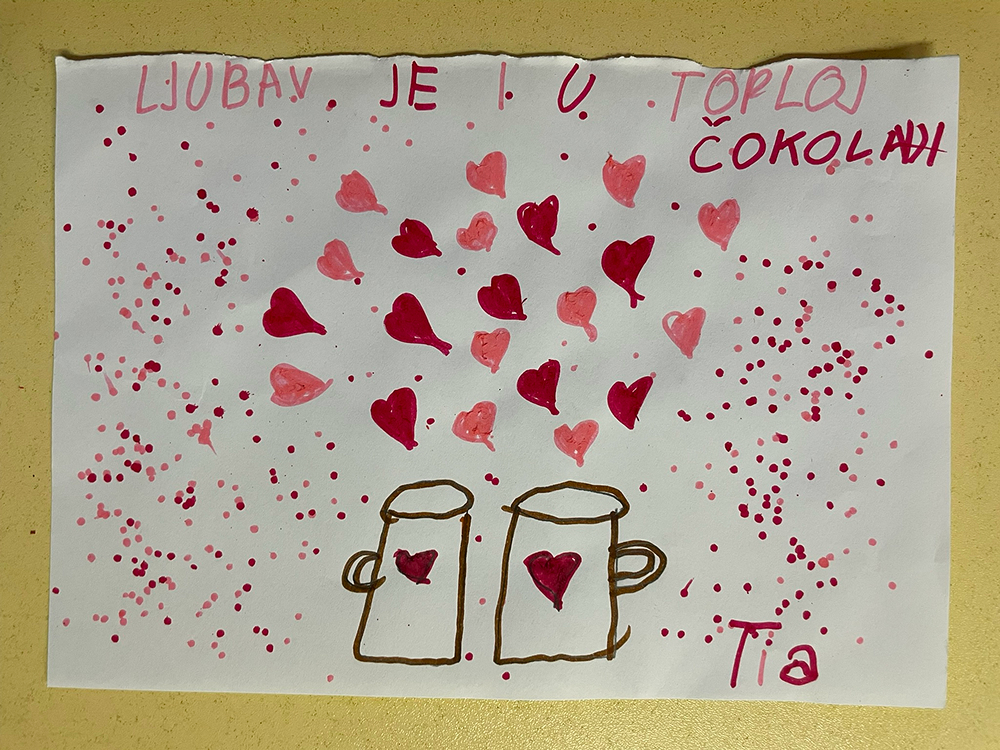 LJUBAV JE I U TOPLOJ
ČOKOLADI
Tia